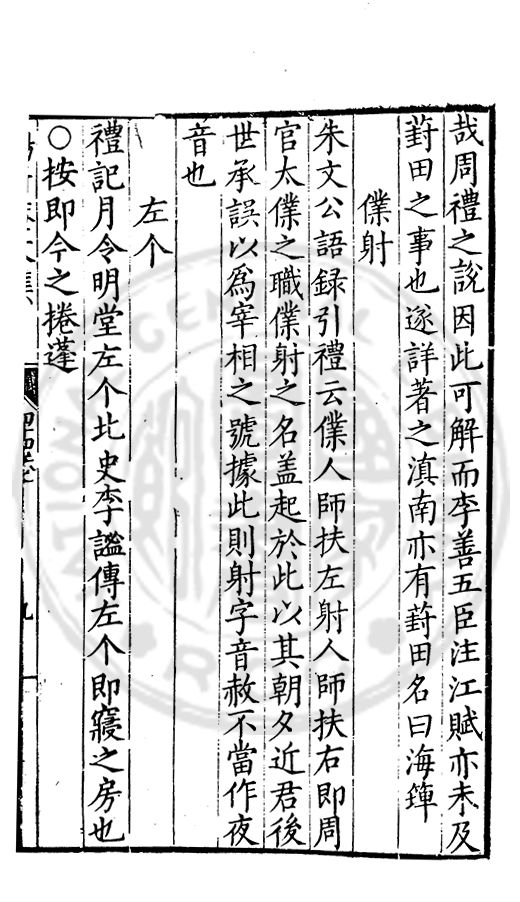 哉周禮之說因此可解而李善五臣注江賦亦未及
葑田之事也遂詳著之滇南亦有葑田名曰海䉶
僕射
朱文公語録引禮云僕人師扶左射人師扶右即周
官太僕之職僕射之名盖起於此以其朝夕近君後
世承誤以爲宰相之號據此則射字音赦不當作夜
音也
左个
禮記月令明堂左个北史李謐傳左个即寢之房也
○按即今之捲蓬